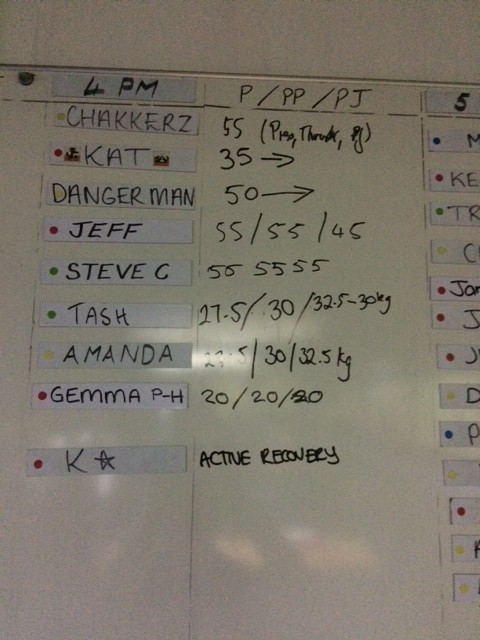 4 PM P / PP / PJ 5
CHAKKERZ 55 (Press, Thrust, PJ)
KAT 35 →
DANGERMAN 50 →
JEFF 55 / 55 / 45
STEVE C 55 55 55
TASH 27.5 / 30 / 32.5-30kg
AMANDA 30 / 32.5 kg
GEMMA P-H 20 / 20 / 20
K ☆ ACTIVE RECOVERY